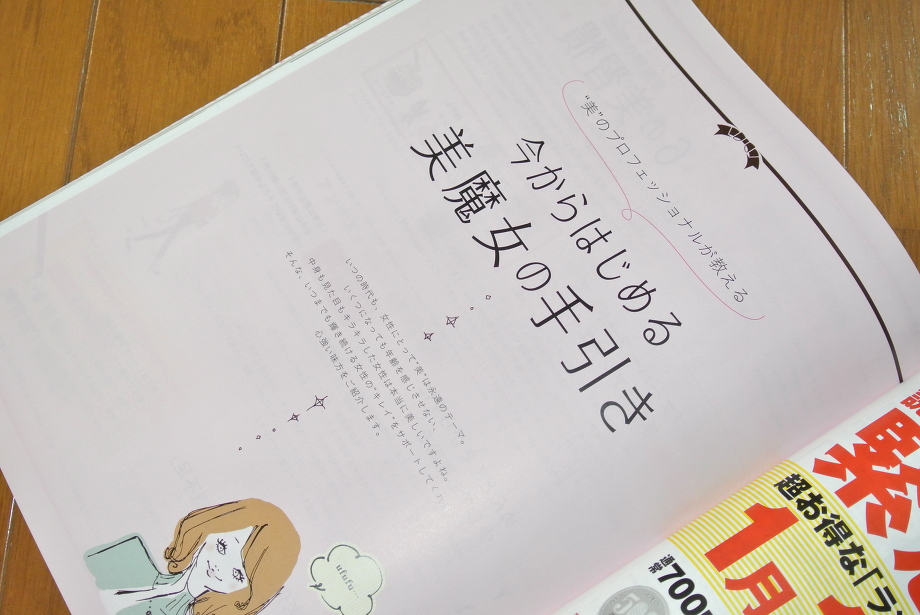 “美”のプロフェッショナルが教える
今からはじめる
美魔女の手引き
いつの時代も、女性にとって“美”は永遠のテーマ。
いくつになっても年齢を感じさせない、
中身も見た目もキラキラした女性は本当に美しいですよね。
そんな、いつまでも輝き続ける女性の“キレイ”をサポートしてくれる
心強い味方をご紹介します。
ufufu...
緊
超お得な「ラ
1月
通常700円